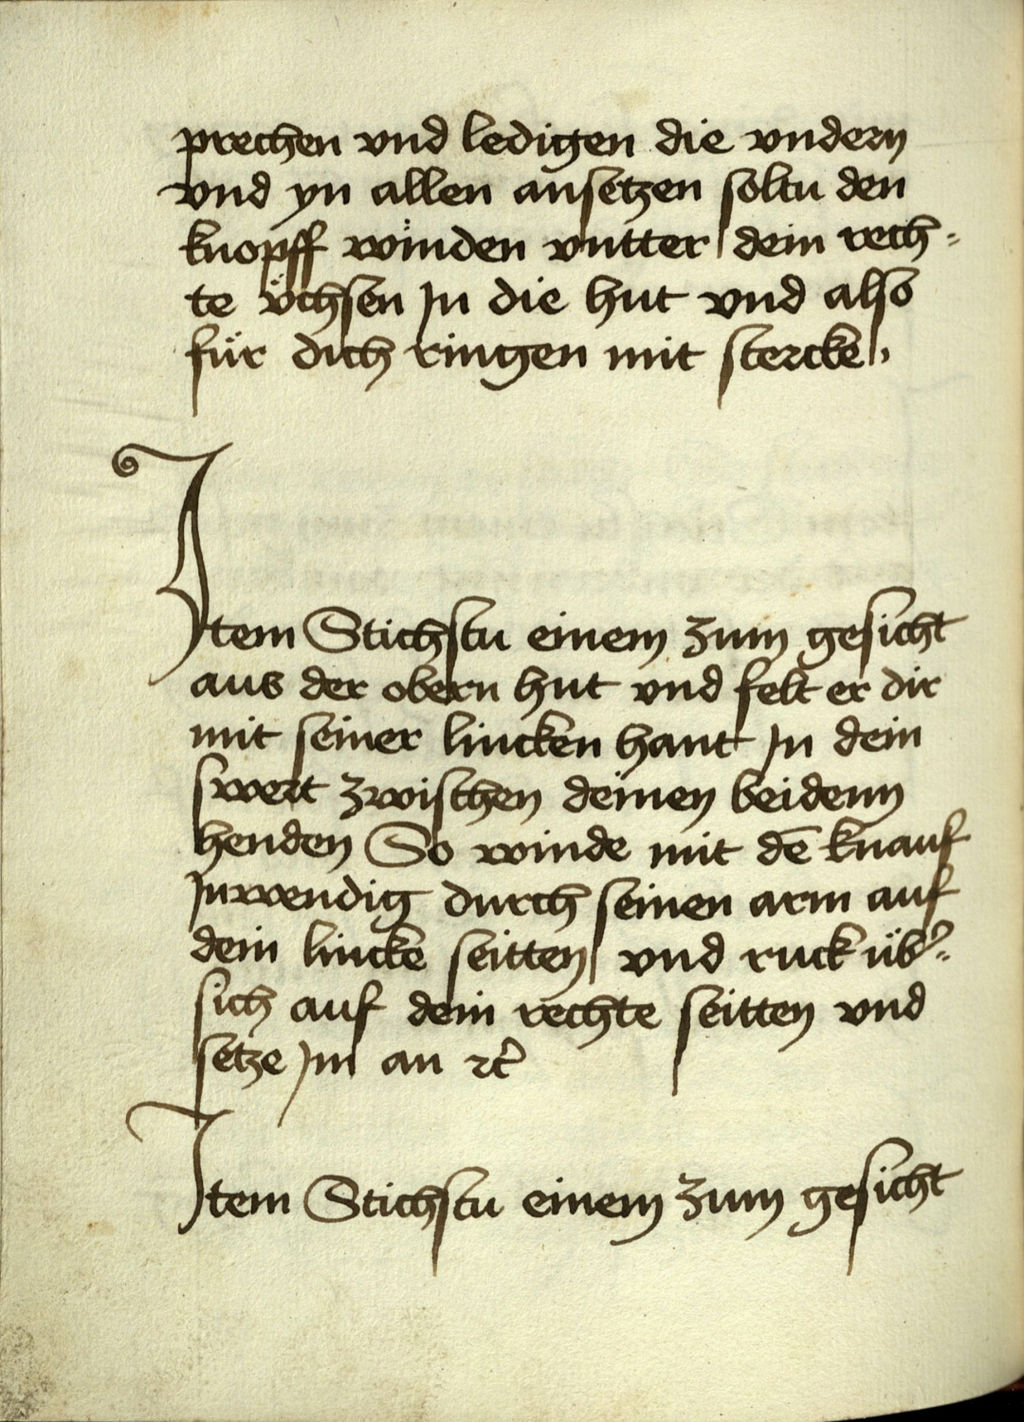 prechen vnd ledigen die vndern
vnd yn allen ansetzen soltu den
knopff winden vntter dem rech=
te v̈chsen Jn die hut vnd also
für dich ringen mit stercke,
Item Stichstu einem zum gesicht
aus der obern hut vnd felt er dir
mit seiner lincken hant Jn dein
swert zwischen deinen beidenn
henden So winde mit dē knauf
Jnwendig durch seinen arm auf
dein lincke seitten vnd ruck üb̉=
sich auf dein rechte seitten vnd
setze Jm an ꝛc̉
Item Stichstu einem zum gesicht